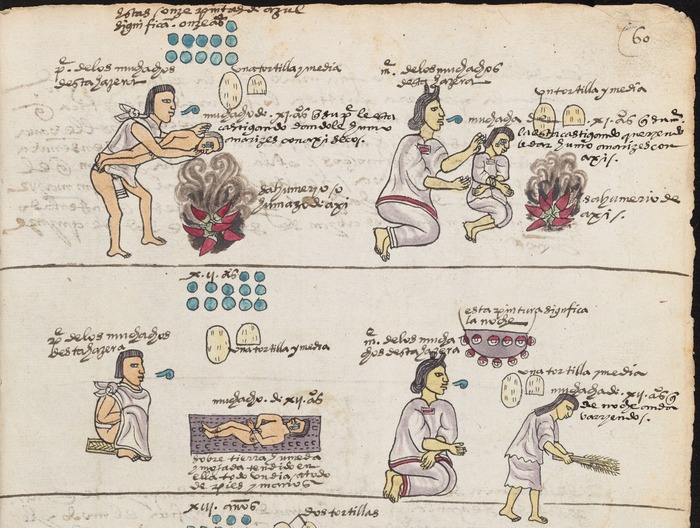 estas onze pintas de azul
significā. onze aº
60
pe. de los muchachos
desta hazera
una tortilla y media
muchacho de . xi. aº q su pe le esta
castigando dandole humo
a narizes con axi seco
sahumerio o
humazo de axi
me. de los muchachos
desta hazera
un tortilla y media
muchacha de . xi. aº q su me
la esta castigando
le dar humo a narizes con
axi.
sahumerio de
axi.
x.ii. aº
pe. de los muchachos
desta hazera
una tortilla y media
muchacho de xii. aº
sobre tierra humeda
y mojada tendido en
ella todo un dia, atado
de pies y manos
me. de los mucha
chos desta hazera
esta pintura significa
la noche
una tortilla y media
muchacha de. xii. aº q
de noche anda
varryendo.
xiii años
dos tortillas